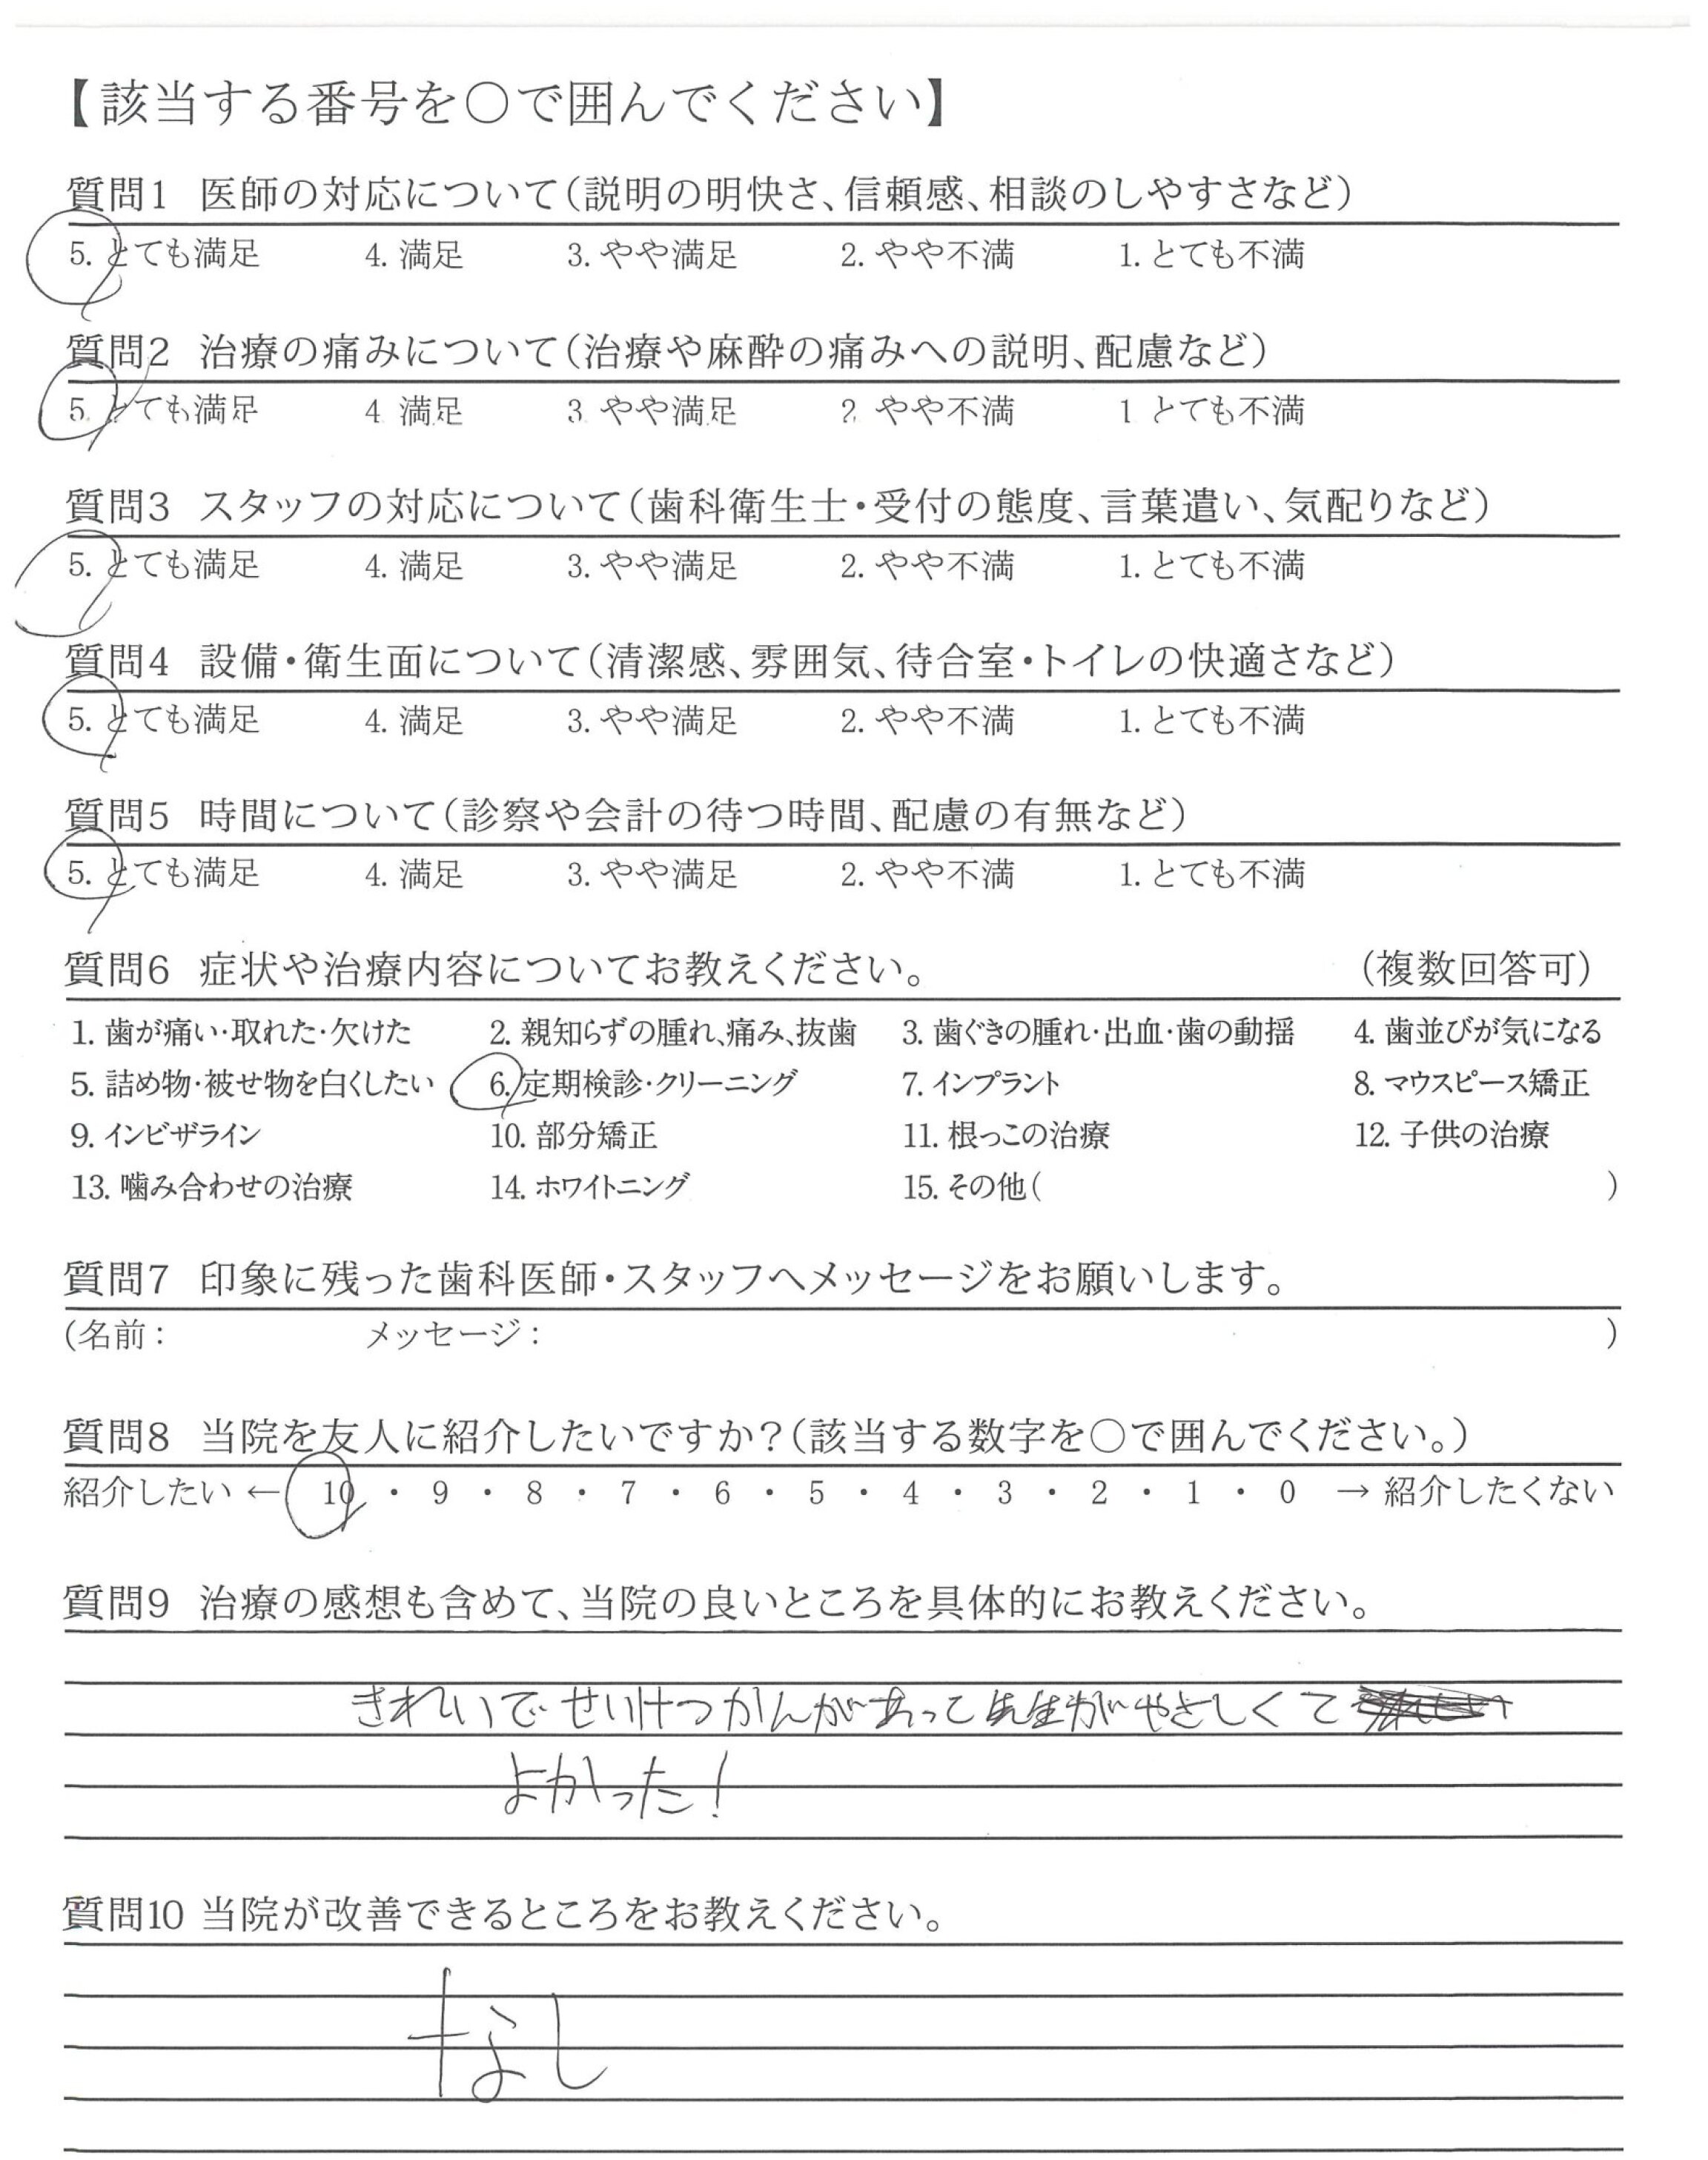 【該当する番号を○で囲んでください】
質問1 医師の対応について(説明の明快さ、信頼感、相談のしやすさなど)
5. とても満足 4. 満足 3. やや満足 2. やや不満 1. とても不満
質問2 治療の痛みについて(治療や麻酔の痛みへの説明、配慮など)
5. とても満足 4 満足 3 やや満足 2 やや不満 1 とても不満
質問3 スタッフの対応について(歯科衛生士・受付の態度、言葉遣い、気配りなど)
5. とても満足 4. 満足 3. やや満足 2. やや不満 1. とても不満
質問4 設備・衛生面について(清潔感、雰囲気、待合室・トイレの快適さなど)
5. とても満足 4. 満足 3. やや満足 2. やや不満 1. とても不満
質問5 時間について(診察や会計の待つ時間、配慮の有無など)
5. とても満足 4. 満足 3. やや満足 2. やや不満 1. とても不満
質問6 症状や治療内容についてお教えください。 (複数回答可)
1. 歯が痛い・取れた・欠けた 2. 親知らずの腫れ、痛み、抜歯 3. 歯ぐきの腫れ・出血・歯の動揺 4. 歯並びが気になる
5. 詰め物・被せ物を白くしたい 6. 定期検診・クリーニング 7. インプラント 8. マウスピース矯正
9. インビザライン 10. 部分矯正 11. 根っこの治療 12. 子供の治療
13. 噛み合わせの治療 14. ホワイトニング 15. その他( )
質問7 印象に残った歯科医師・スタッフへメッセージをお願いします。
(名前: メッセージ: )
質問8 当院を友人に紹介したいですか?(該当する数字を○で囲んでください。)
紹介したい ← 10 ・ 9 ・ 8 ・ 7 ・ 6 ・ 5 ・ 4 ・ 3 ・ 2 ・ 1 ・ 0 → 紹介したくない
質問9 治療の感想も含めて、当院の良いところを具体的にお教えください。
きれいで せいけつかんがあって先生がやさしくて
よかった!
質問10 当院が改善できるところをお教えください。
なし